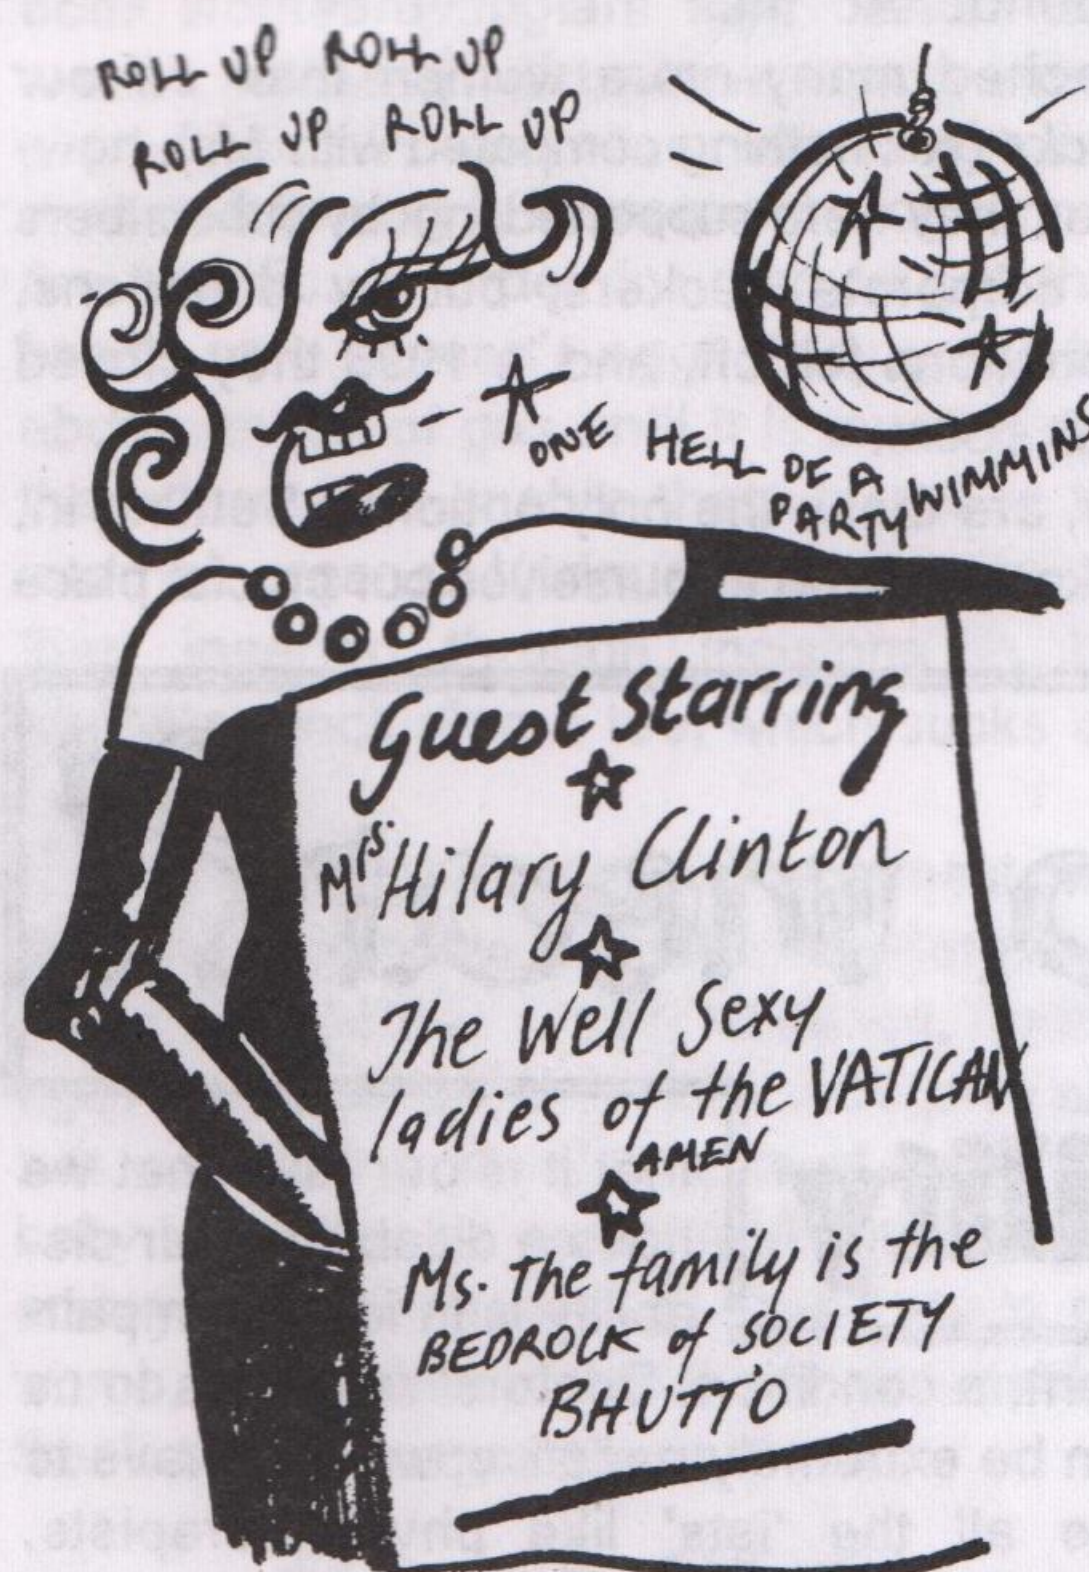 ROLL UP ROLL UP
ROLL UP ROLL UP
ONE HELL OF A
PARTY WIMMINS
Guest Starring
Mrs. Hilary Clinton
The Well Sexy
ladies of the VATICAN
AMEN
Ms. The family is the
BEDROCK of SOCIETY
BHUTTO